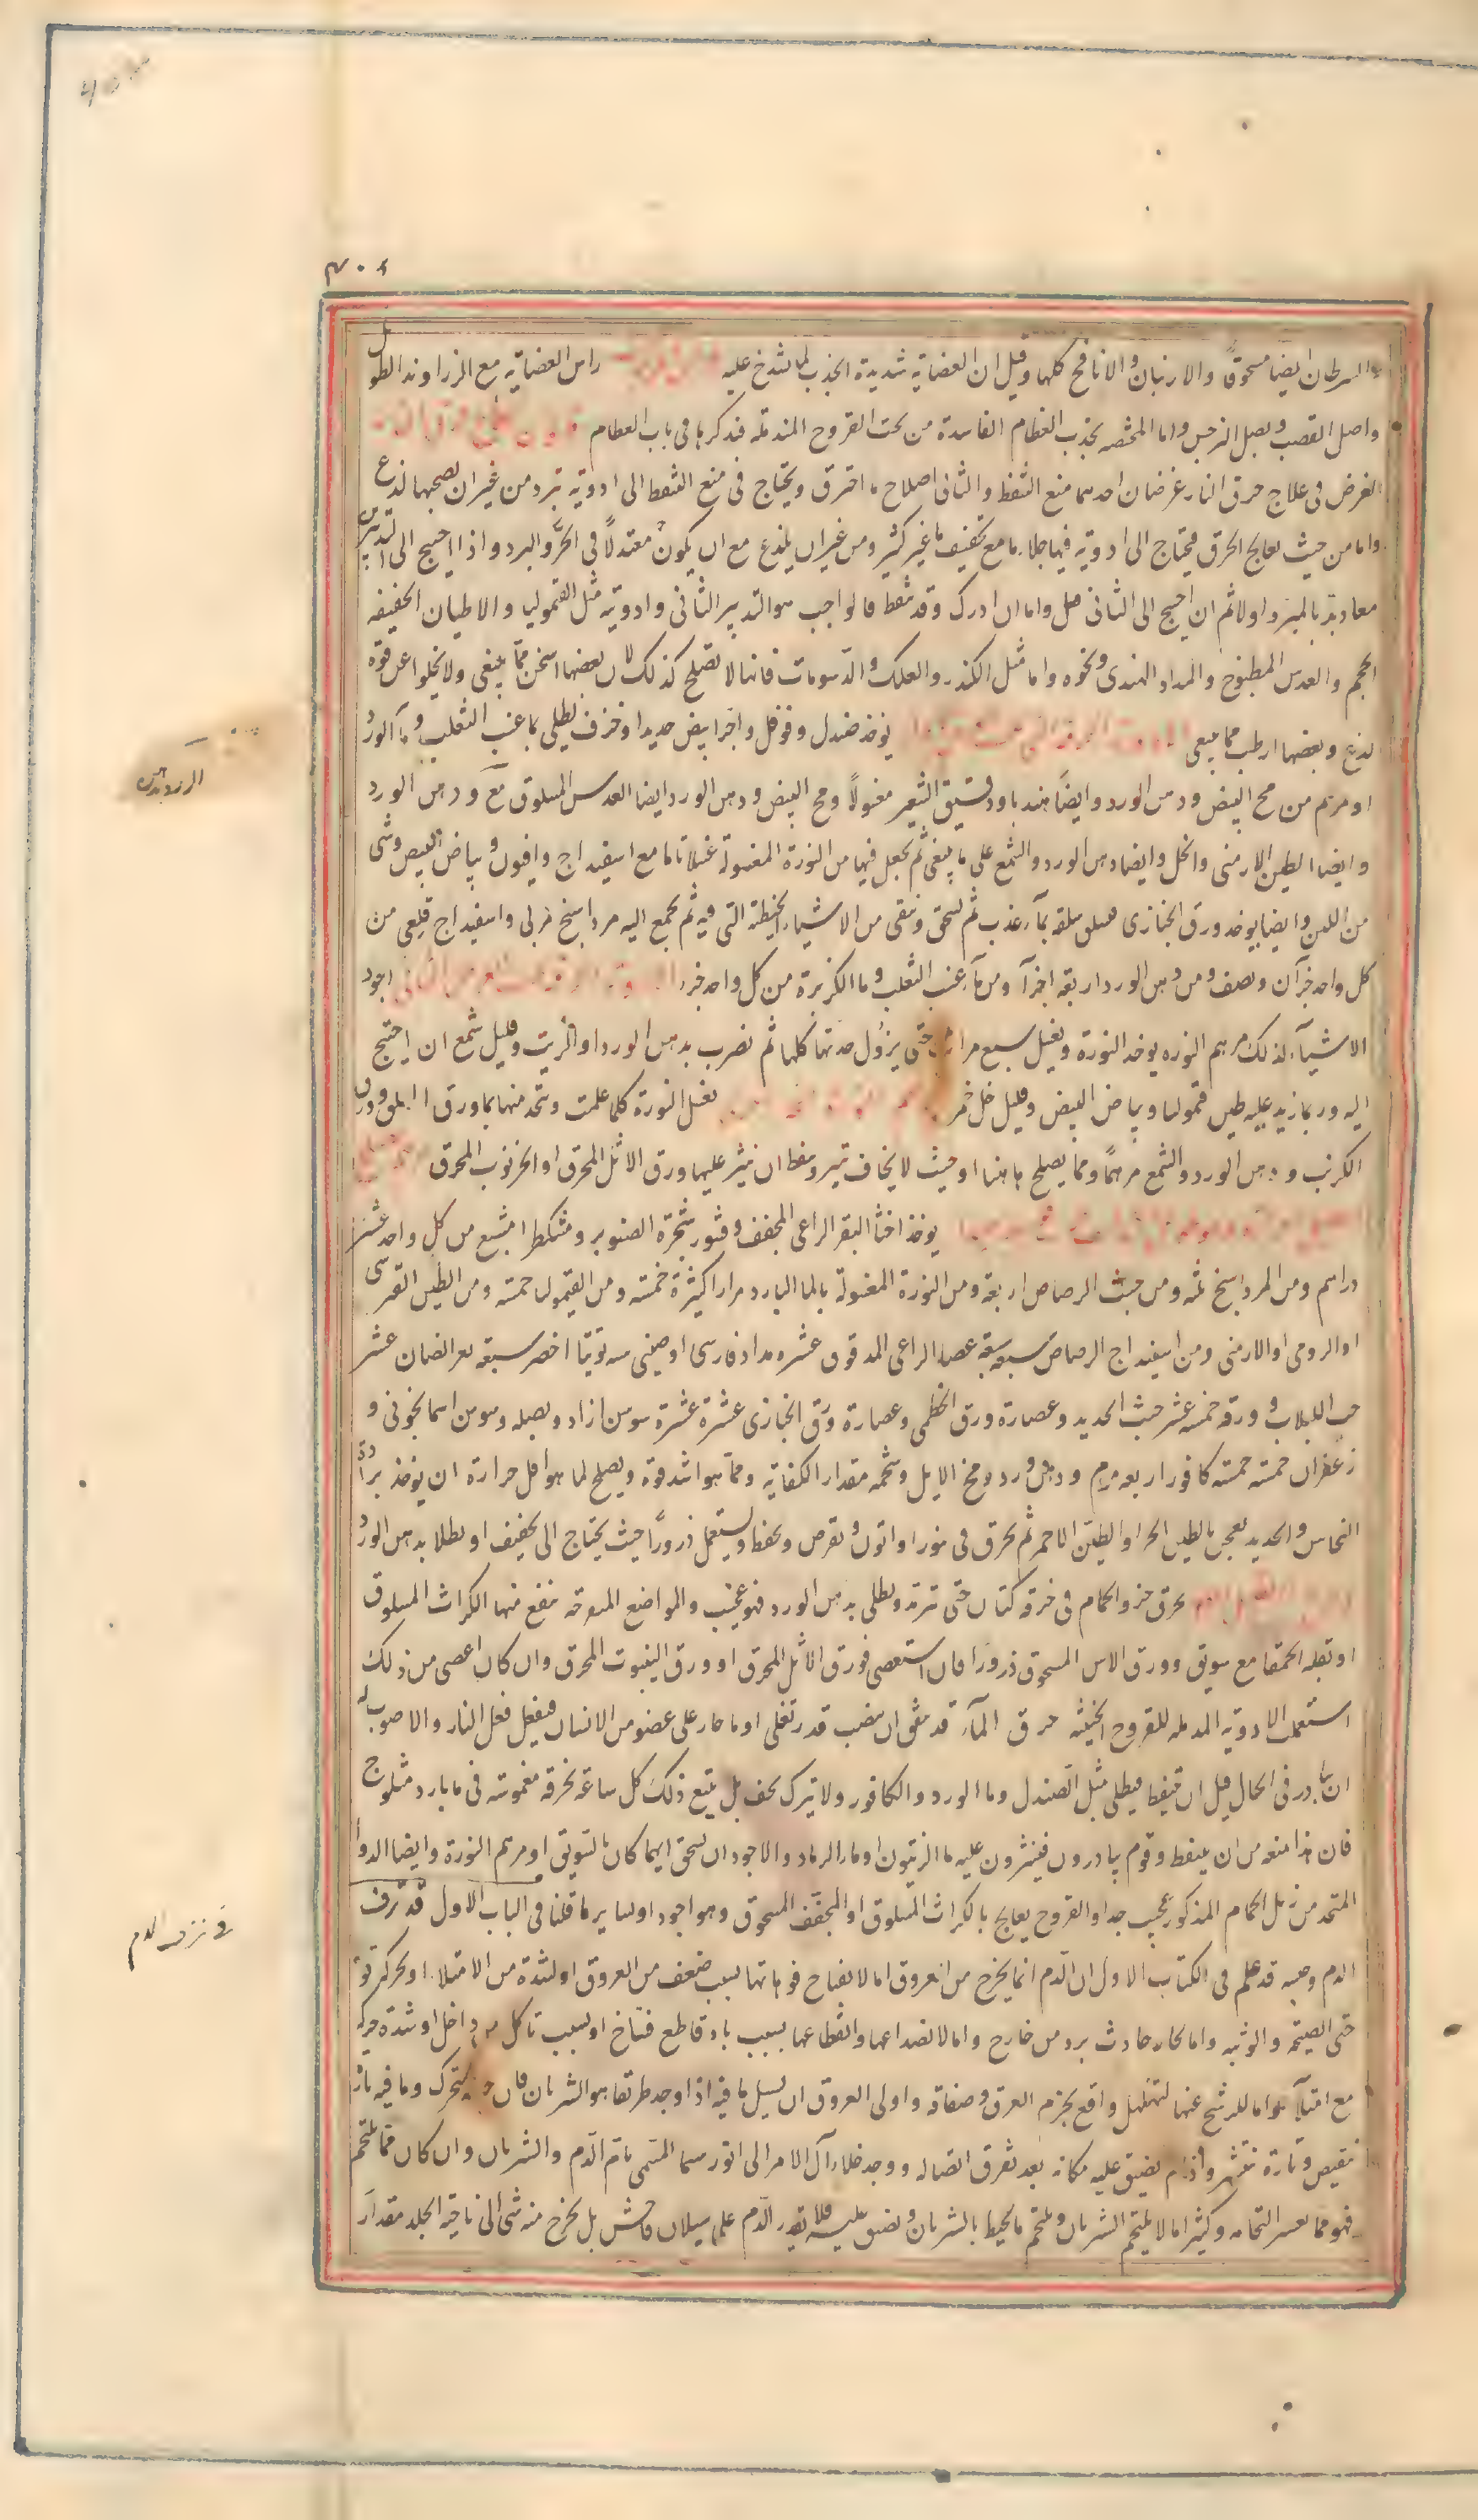 السرطان ايضا مسحوقا والارنبان والانافح كلها وقيل ان العضاية شديدة الجذب لما شدخ عليه راس العضاية مع الزراوند الطويل
واصل القصب وبصل النرجس واما المخصه بجذب العظام الفاسدة من تحت القروح المندملة فنذكرها فى باب العظام
الغرض فى علاج حرق النار غرضان احدهما منع التنفط والثانى اصلاح ما احترق ويحتاج فى منع التنفط الى ادوية تبرد من غير ان يصحبها لذع
واما من حيث يعالج الحرق فيحتاج الى ادوية فيها جلاء ما مع تجفيف ما غير كثير ومن غير ان يلذع مع ان يكون معتدلا فى الحر والبرد واذا احتيج الى التدبيرين
معا دبر بالمبرد اولا ثم ان احتيج الى الثانى فعل واما ان ادرك وقد تنفط فالواجب هو التدبير الثانى وادويته مثل القيموليا والاطيان الخفيفه
الحجم والعدس المطبوخ والمداد الهندى ونحوه واما مثل الكندر والعلك والدسومات فانها لا تصلح كذلك لان بعضها اسخن مما ينبغى ولا يخلوا عن قوة
لذع وبعضها ارطب مما ينبغى يوخذ صندل وفوفل واجر ابيض جديد او خزف يطلى بماء عنب الثعلب وماء الورد
او مرهم من مح البيض ودهن الورد وايضا هندبا ودقيق الشعير مغسولا ومح البيض ودهن الورد ايضا العدس المسلوق مع ودهن الورد
وايضا الطين الارمنى والخل وايضا دهن الورد والشمع على ما ينبغى ثم يجعل فيها من النورة المغسولة غسلا تاما مع اسفيداج وافيون وبياض البيض وشى
من اللبن وايضا يوخذ ورق الخبازى فيسلق سلقة بماء عذب ثم يسحق وينقى من الاشياء الخيطية التى فيه ثم يجمع اليه مرداسنج مربى واسفيداج قليعى من
كل واحد جزآن ونصف ومن دهن الورد اربعة اجزآ ومن ماء عنب الثعلب وما الكزبرة من كل واحد جزء اجود
الاشياء لذلك مرهم النوره يوخذ النورة ويغسل سبع مرات حتى يزول حدتها كلها ثم تضرب بدهن الورد او الزيت وقليل شمع ان احتيج
اليه وربما زيد عليه طين قيموليا وبياض البيض وقليل خل خمر تغسل النورة كلما علمت ويتخذ منها بماء ورق السلق وورق
الكرنب ودهن الورد والشمع مرهما ومما يصلح هاهنا او حيث لا يخاف ان ينثر عليها ورق الاثل المحرق او الخرنوب المحرق
يوخذ اخثا البقر الراعى المجفف وقشور شجرة الصنوبر ومشكطرامشيع من كل واحد عشر
دراهم ومن المرداسنج ثلثه ومن خبث الرصاص اربعة ومن النورة المغسولة بالما البارد مرارا كثيرة خمسة ومن القيموليا خمسة ومن الطين القبرسى
او الرومى او الارمنى ومن اسفيداج الرصاص سبعه سبعة عصا الراعى المدقوق عشره مداد فارسى او صينى توتيا اخضر سبعه بعر الضان عشر
حب اللبلاب وورقه خمسه عشر خبث الحديد وعصارة ورق الخطمى وعصارة ورق الخبازى عشرة عشرة سوسن ازاد وبصله وسوسن اسمانجونى و
زعفران خمسه خمسه كافور اربعه مرهم ودهن ورد ومخ الايل وشحمه مقدار الكفاية ومما هو اشد قوة ويصلح لما هو اقل حرارة ان يوخذ برادة
النحاس والحديد يعجن بالطين الحر او الطين الاحمر ثم يحرق فى تنور او اتون ويقرص ويحفظ ويستعمل ذرورا حيث يحتاج الى تجفيف او طلا بدهن الورد
يحرق خرو الحمام فى خرقة كتان حتى تترمد ويطلى بدهن الورد فهو عجيب والمواضع المتقرحه ينفع منها الكراث المسلوق
او بقلة الحمقا مع سويق وورق الاس المسحوق ذرورا فان استعصى فورق الاثل المحرق او ورق الينبوت المحرق وان كان اعصى من ذلك
استعمل الادوية المدمله للقروح الخبيثه حرق الماء قد يتفق ان ينصب قدر تغلى او ما حار على عضو من الانسان فيفعل فعل النار والاصوب له
ان يبادر فى الحال قبل ان يتنفط فيطلى بمثل الصندل وما الورد والكافور ولا يترك يجف بل يتبع ذلك كل ساعة بخرقة مغموسه فى ما بارد مثلوج
فان هذا يمنعه من ان يتنفط وقوم يبادرون فينثرون عليه ما الزيتون او ماء الرماد والاجود ان يسحق ايهما كان بالسويق او مرهم النورة وايضا الدواء
المتخذ من زبل الحمام المذكور عجيب جدا والقروح يعالج بالكراث المسلوق او المجفف المسحوق وهو اجود او لسا ير ما قلنا فى الباب الاول فى نزف
الدم وحبسه قد علم فى الكتاب الاول ان الدم انما يخرج من العروق اما لانفتاح فوهاتها لسبب ضعف من العروق او لشدة من الامتلا او لحركة قوية
حتى الصيحة والوثبه واما كان حادث برد من خارج واما لانصداعها وانقطاعها بسبب باد قاطع فتاخ او لسبب تاكل من داخل او شدة حركة
مع امتلاء واما للرشح عنها لتهلهل واقع بجرم العرق وصفاقه واولى العروق ان يسيل ما فيه اذا وجد طريقا هو الشريان فان جرمه يتحرك وما فيه تارة
تنقبض وتارة تنتشر واذا لم يضيق عليه مكانه بعد تفرق اتصاله ووجد خلاء آل الامر الى انورسما المسمى بام الدم والشريان وان كان مما يلتحم
فهو مما يعسر التحامه وكثيرا ما لا يلتحم الشريان ويلتحم ما يحيط بالشريان ويضيق عليه فلا يقدر الدم على سيلان فاحش بل يخرج منه شى الى ناحية الجلد مقدار
فى نزف الدم